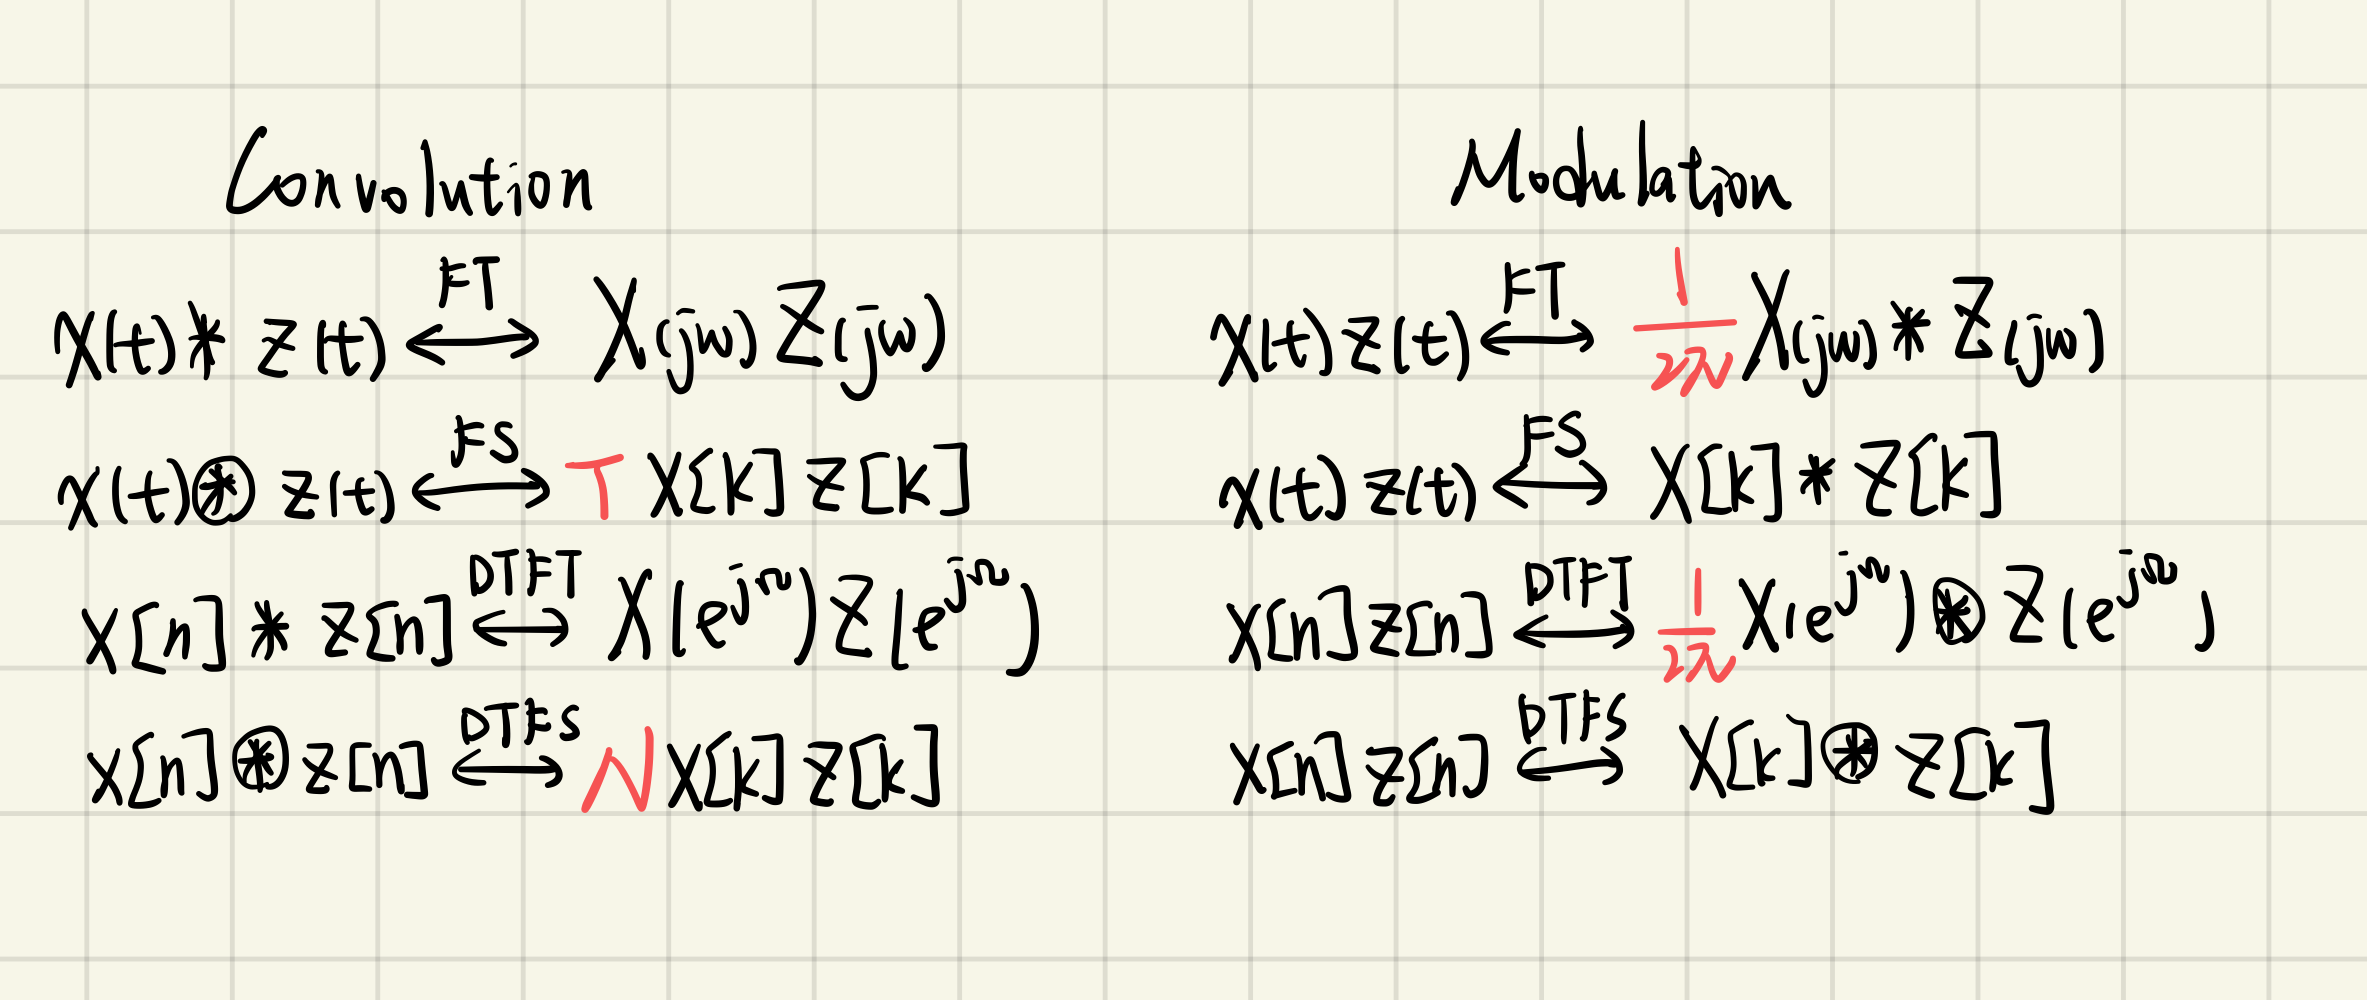 Convolution
x(t) * z(t) ⟷FT X(jω) Z(jω)
x(t) ⊛ z(t) ⟷FS T X[k] Z[k]
x[n] * z[n] ⟷DTFT X(e^jΩ) Z(e^jΩ)
x[n] ⊛ z[n] ⟷DTFS N X[k] Z[k]
Modulation
x(t) z(t) ⟷FT 1/2π X(jω) * Z(jω)
x(t) z(t) ⟷FS X[k] * Z[k]
x[n] z[n] ⟷DTFT 1/2π X(e^jΩ) ⊛ Z(e^jΩ)
x[n] z[n] ⟷DTFS X[k] ⊛ Z[k]